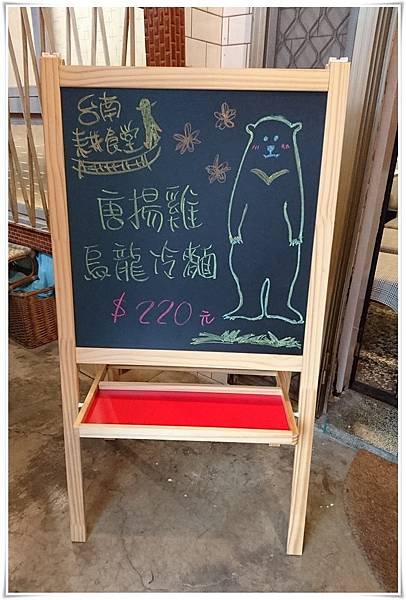 台南
耕食堂
唐揚雞
烏龍冷麵
$220元